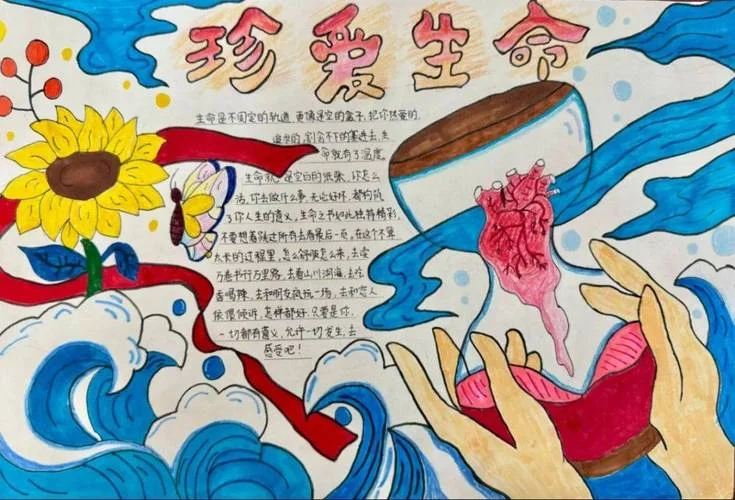 珍爱生命
生命是不固定的轨道,更像是空的盒子,把你热爱的,
追求的,割舍不下的塞进去,生
命就有了温度。
生命就是空白的纸张,你怎么
活,你去做什么事,无论好坏,都构成
了你人生的意义,生命之书如此独特精彩,
不要想着跳过所有去看最后一页,在这个不算
太长的过程里,怎么舒服怎么来,去读
万卷书行万里路,去看山川河海,去吃
香喝辣,去和朋友疯玩一场,去和恋人
依偎倾诉,怎样都好,只要是你,
一切都有意义,允许一切发生,去
感受吧!